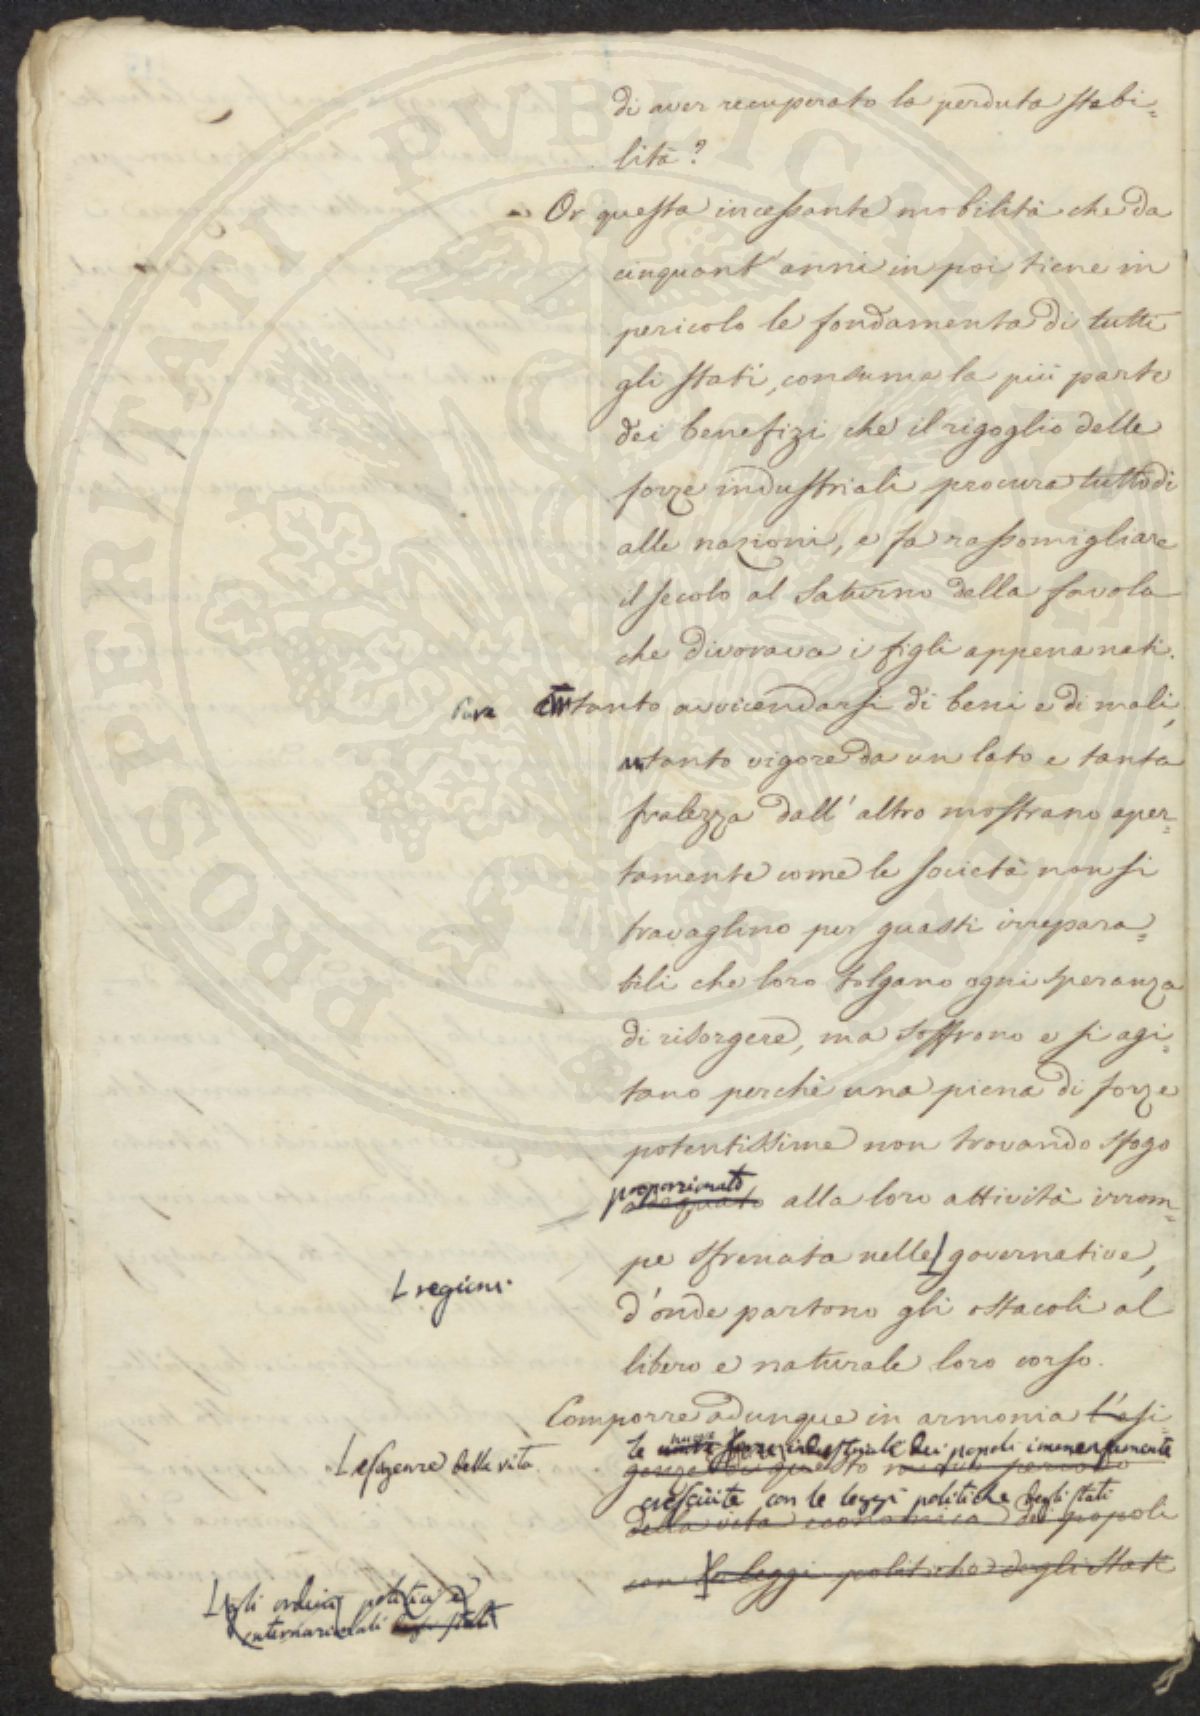 di aver recuperato la perduta stabi=
lità?
Or questa incessante mobilità che da
cinquant' anni in poi tiene in
pericolo le fondamenta di tutti
gli stati, consuma la più parte
dei benefizi che il rigoglio delle
forze industriali procura tuttodì
alle nazioni, e fa rassomigliare
il secolo al Saturno della favola
che divorava i figli appena nati.
Pure tanto avvicendarsi di beni e di mali,
tanto vigore da un lato e tanta
fralezza dall' altro mostrano aper=
tamente come le società non si
travaglino per guasti irrepara=
bili che loro tolgano ogni speranza
di risorgere, ma soffrono e si agi=
tano perchè una piena di forze
potentissime non trovando sfogo
proporzionato
adequato alla loro attività irrom=
pe sfrenata nelle governative,
regioni
d'onde partono gli ostacoli al
libero e naturale loro corso.
Comporre adunque in armonia l'esi=
le nuove forze industriali dei popoli immensamente
L esigenze della vita
genze di questo nuovo periodo
cresciute, con le leggi politiche degli stati
della vita economica dei popoli
con le leggi politiche degli stati
gli ordini politici e
internazionali degli stati
PROSPERITATI PVBLICAE